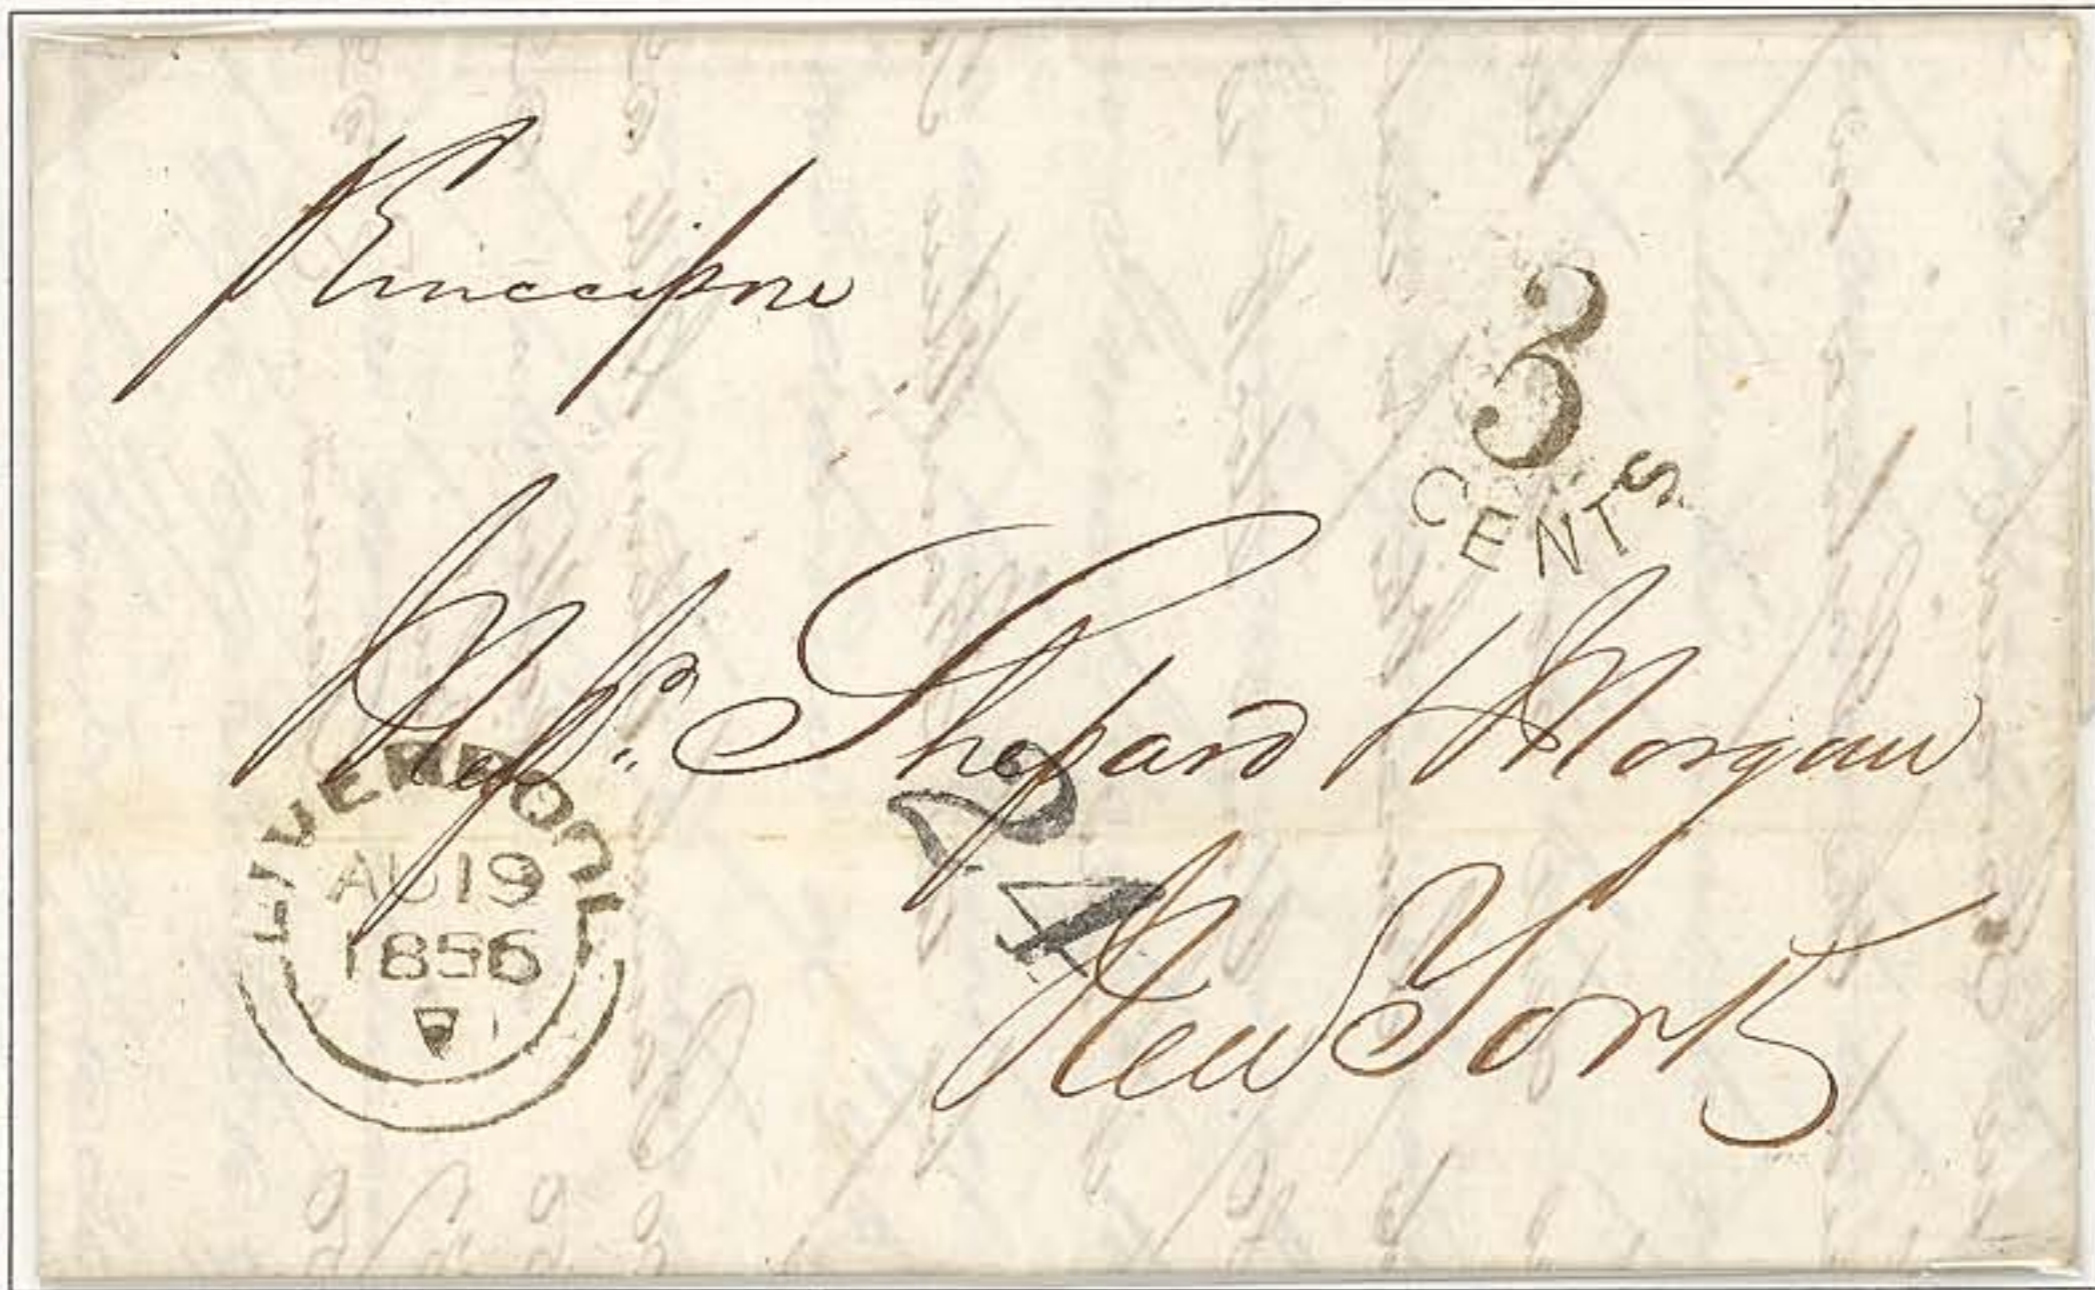 3
CENTS
Mess.rs Shepard & Morgan
24
New York
LIVERPOOL
AU 19
1856